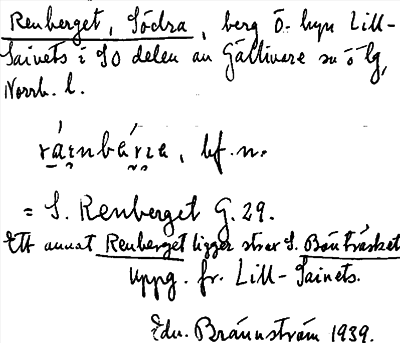 Renberget, Södra, berg ö. byn Lill-
Sainets i SO delen av Gällivare sn ö lg,
Norrb. l.
bf. n.
= S. Renberget G. 29.
Ett annat Renberget ligger strax S. Bönträsket
Uppg. fr. Lill-Sainets.
Edv. Brännström 1939.